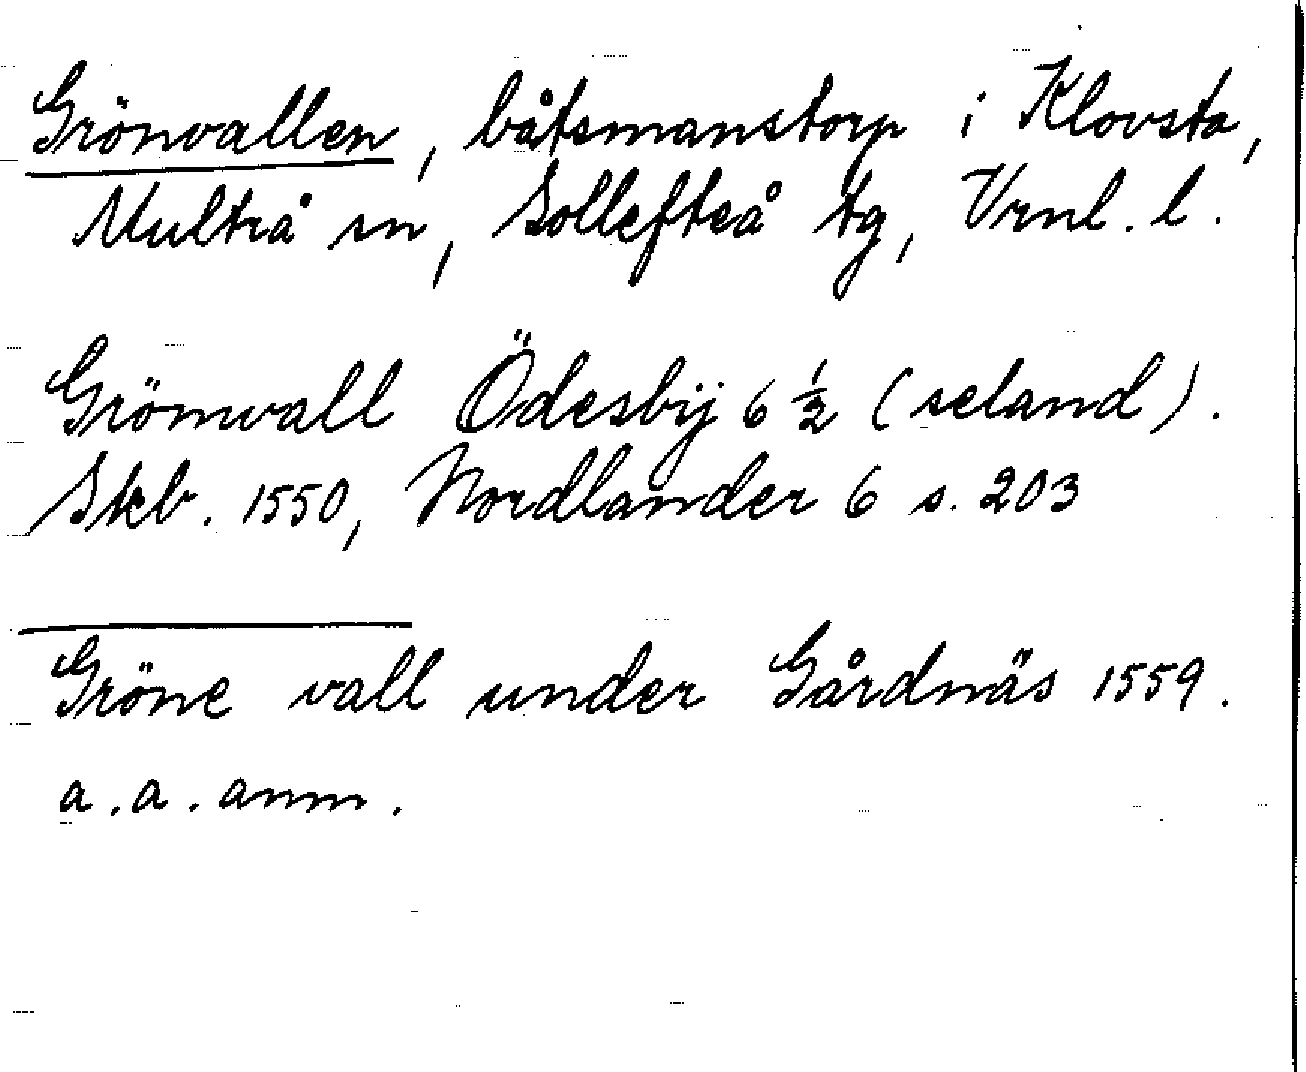 Grönvallen, båtsmanstorp i Klovsta,
Multrå sn, Sollefteå tg, Vrnl. l.
Grömvall Ödesbÿ 6 1/2 (seland).
Skb. 1550, Nordlander 6 s. 203
Gröne vall under Gårdnäs 1559.
a.a. anm.